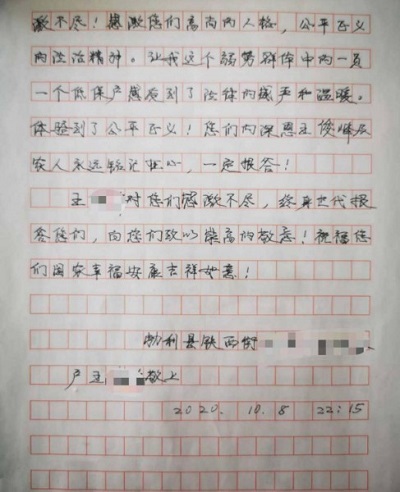 激不尽！感激您们高尚的人格，公平正义
的法治精神。让我这个弱势群体中的一员
一个低保户感受到了法律的威严和温暖。
体验到了公平正义！您们的深恩王俊峰及
家人永远铭记在心，一定报答！
王 对您们感激不尽，终身世代报
答您们，向您们致以崇高的敬意！祝福您
们阖家幸福安康吉祥如意！
勃利县铁西街
户王 敬上
2020. 10. 8 22:15